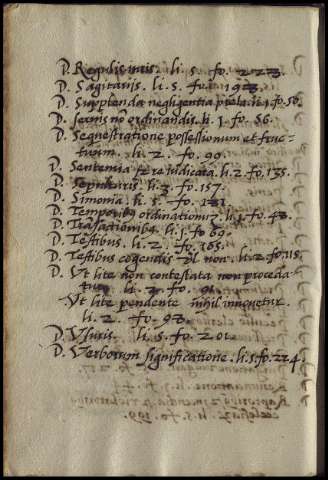 D. Regulis iuris. li. 5. fo. 223.
D. Sagitariis. li. 5. fo. 193.
D. Supplenda negligentia prela. li. 1. fo. 50.
D. servis nō ordinandis. li. 1. fo. 56.
D. Sequestratione possessionum et fruc-
tuum. li. 2. fo. 99.
D. Sententia et re iudicata. li. 2. fo. 135.
D. Sepulturis. li. 3. fo. 157.
D. Simonia. li. 5. fo. 181.
D. Temporibꝫ ordinationum. li. 1. fo. 48.
D. Trāsactionibꝫ. li. 1. fo. 69.
D. Testibus. li. 2. fo. 105.
D. Testibus cogendis vl non. li. 2. fo. 115.
D. Ut lite non contestata non proceda-
tur. li. 2. fo. 91.
Ut lite pendente nihil innovetur.
li. 2. fo. 98.
D. Usuris. li. 5. fo. 201.
D. Verborum significatione. li. 5. fo. 224.